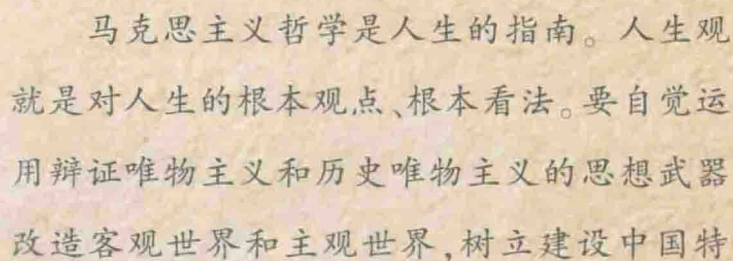 马克思主义哲学是人生的指南。人生观
就是对人生的根本观点、根本看法。要自觉运
用辩证唯物主义和历史唯物主义的思想武器
改造客观世界和主观世界,树立建设中国特